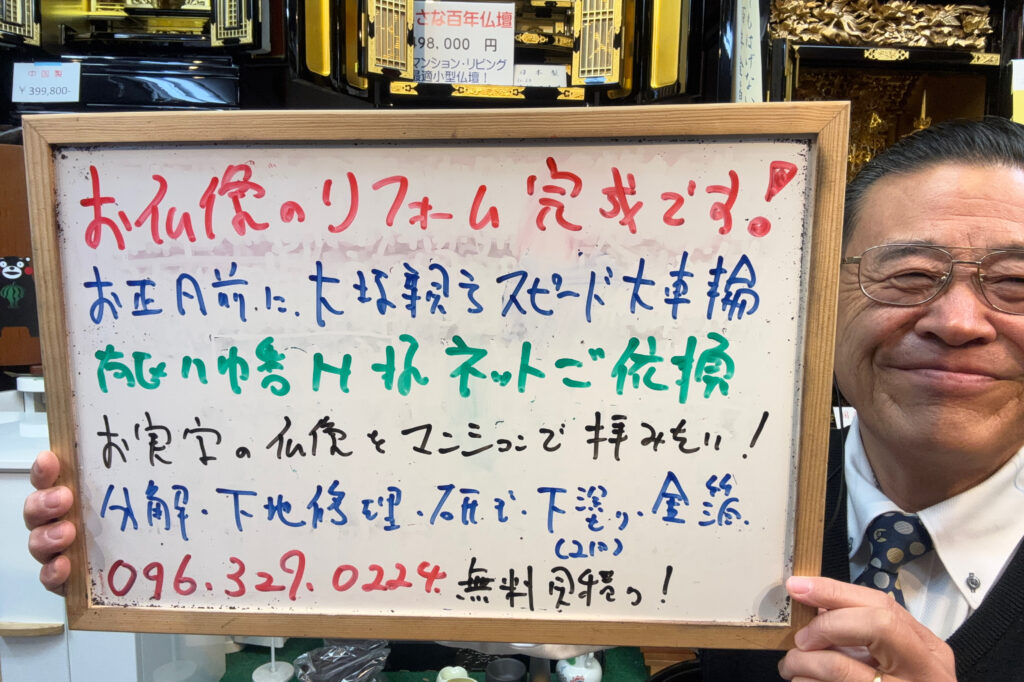 中国製
¥399,800-
さな百年仏壇
98,000 円
マンション・リビング
最適小型仏壇！
日本製
もはげない
お仏像のリフォーム完成です!
お正月前に、大坂親方スピード大車輪
南区八幡H様 ネットご依頼
お実家の仏像をマンションで拝みたい!
分解・下地修理・研ぎ・下塗り・金箔
(2回)
096.329.0224. 無料見積り!